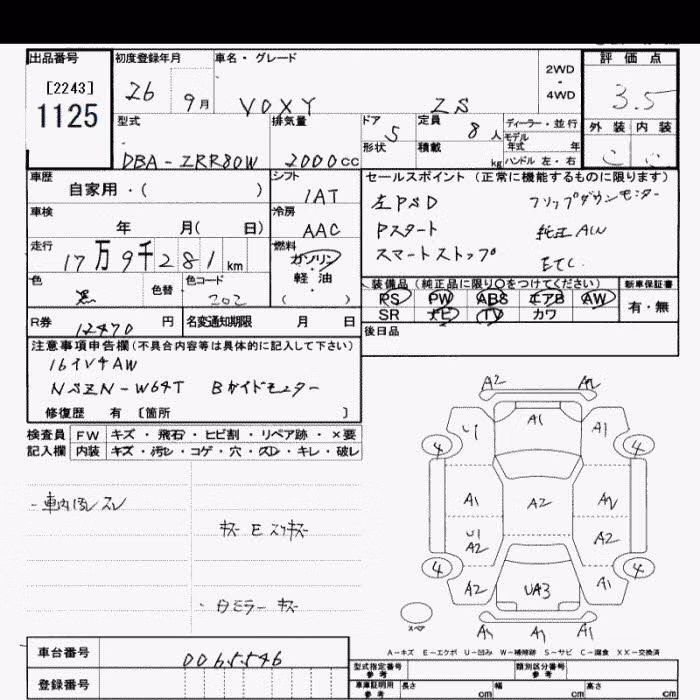 出品番号 初度登録年月 車名・グレード 評価点
[2243] 1125
26 9月 VOXY ZS 2WD・4WD 3.5
型式 排気量 ドア 5 定員 8人 ディーラー・並行 外装 内装
形状 積載 kg モデル年式 年 ハンドル 左・右
DBA-ZRR80W 2000cc
車歴 シフト セールスポイント (正常に機能するものに限ります)
自家用・( ) IAT 左PSD フリップダウンモニター
車検 冷房 Pスタート 純正AW
年 月( 日) AAC スマートストップ ETC
走行 燃料
17万9千281km ガソリン・軽油 ( )
色 色替 色コード 装備品 (純正品に限り○をつけてください) 新車保証書
黒 202 PS PW ABS エアB AW 有・無
R券 12470円 名変通知期限 月 日 SR ナビ TV カワ
後日品
注意事項申告欄 (不具合内容等は具体的に記入して下さい)
16インチAW
NSZN-W64T Bガイドモニター
修復歴 有 〔箇所 〕
検査員 FW キズ・飛石・ヒビ割・リペア跡・×要
記入欄 内装 キズ・汚レ・コゲ・穴・スレ・キレ・破レ
キズ E スリキズ
・白ミラー キズ
A2 A2
U1 A1 A1
4 4
A1 A2 A2
U1 A2 A2
4 4
A2 UA3 A1
スペア A1 A1 A1
A-キズ E-エクボ U-凹み W-補修跡 S-サビ C-腐食 XX-交換済
車台番号 0065546
登録番号
型式指定番号 参考 類別区分番号 参考
車庫証明用 参考 長さ cm 幅 cm 高さ cm